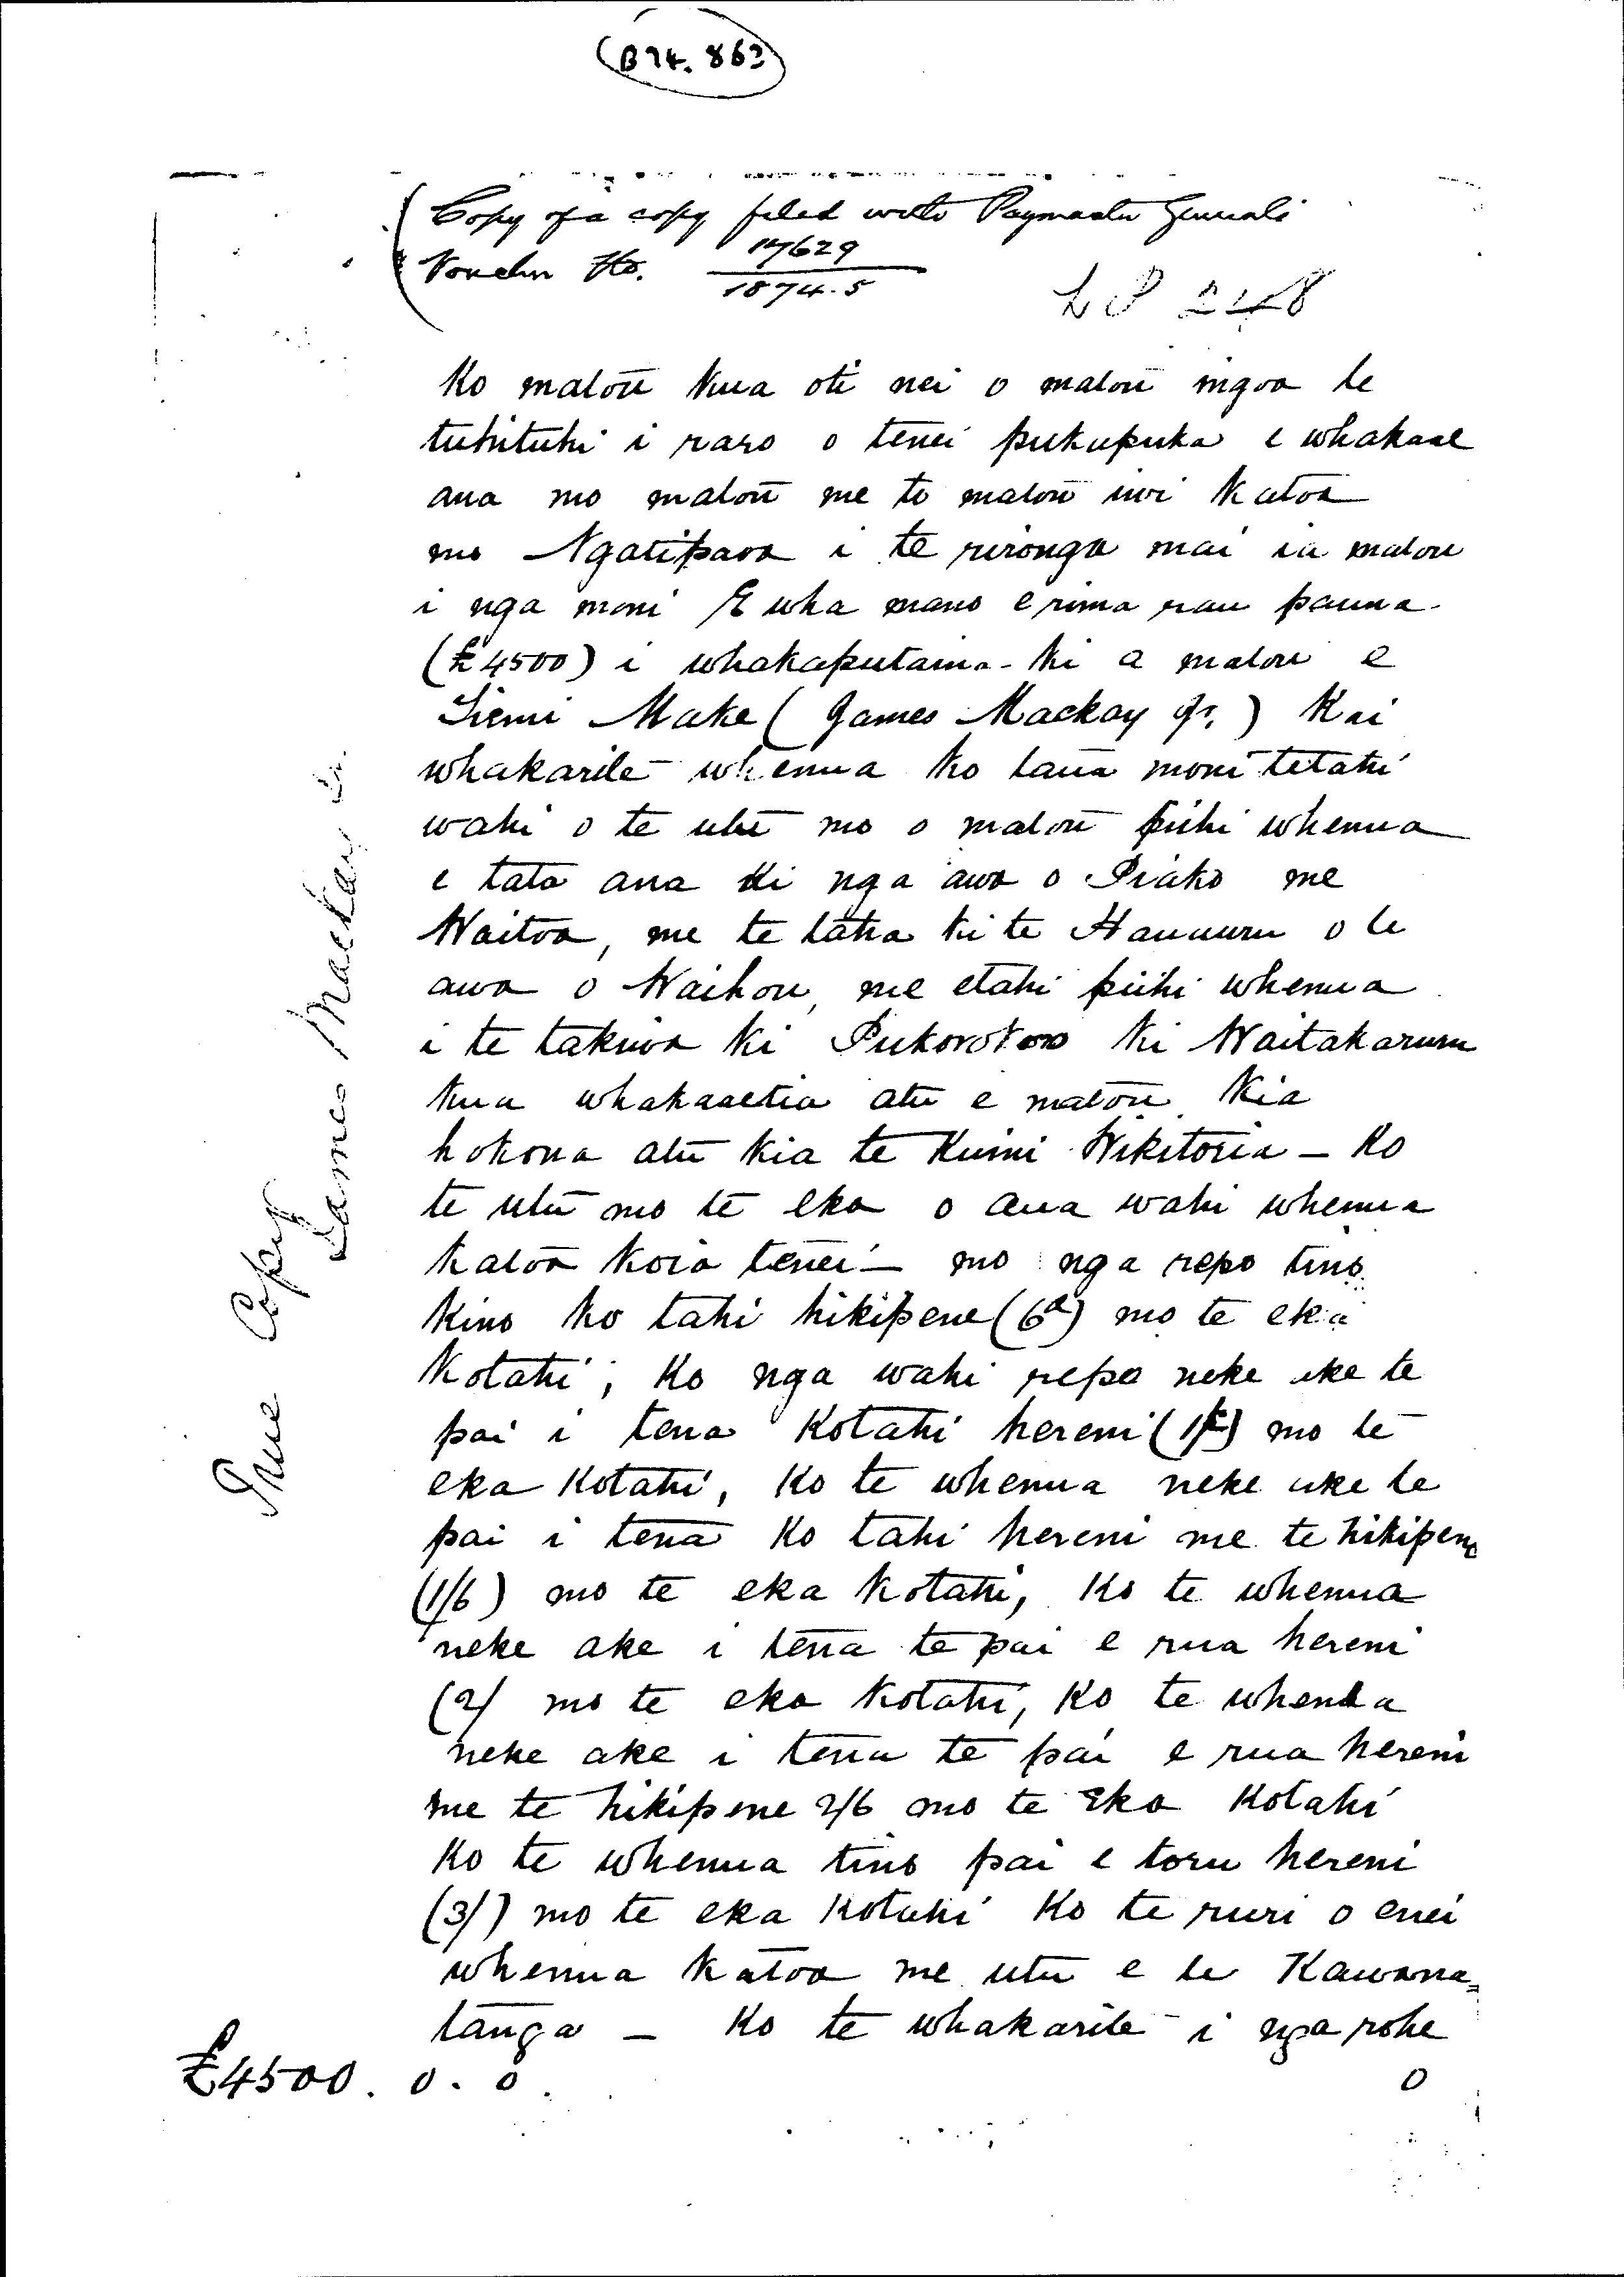 B74. 863
Copy of a copy filed with Paymaster Generals
Voucher No. 17629
1874.5
Ko matou kua oti nei o matou ingoa te
tuhituhi i raro o tenei pukupuka e whakaae
ana mo matou me to matou iwi katoa
mo Ngatipaoa i te rironga mai ia matou
i nga moni E wha mano e rima rau pauna
(£4500) i whakaputaina ki a matou e
Tiemi Make (James Mackay Jr.) Kai
whakarite whenua ko taua moni tetahi
wahi o te utu mo o matou piihi whenua
e tata ana ki nga awa o Piako me
Waitoa, me te taha ki te Hauauru o te
awa o Waihou, me etahi piihi whenua
i te takiwa ki Pukorokoro ki Waitakaruru
kua whakaaetia atu e matou kia
hokona atu kia te Kuini Wikitoria – Ko
te utu mo te eka o aua wahi whenua
katoa koia tenei – mo nga repo tino
kino ko tahi hikipene (6d) mo te eka
kotahi; Ko nga wahi repo neke ake te
pai i tena Kotahi hereni (1/-) mo te
eka Kotahi, Ko te whenua neke ake te
pai i tena Ko tahi hereni me te hikipene
(1/6) mo te eka Kotahi, Ko te whenua
neke ake i tena te pai e rua hereni
(2/ mo te eka Kotahi, Ko te whenua
neke ake i tena te pai e rua hereni
me te hikipene 2/6 mo te Eka Kotahi
Ko te whenua tino pai e toru hereni
(3/) mo te eka Kotahi Ko te ruri o enei
whenua katoa me utu e te Kawana=
tanga – Ko te whakarite i nga rohe
£4500. 0. 0. o
True Copy
James Mackay Jr.